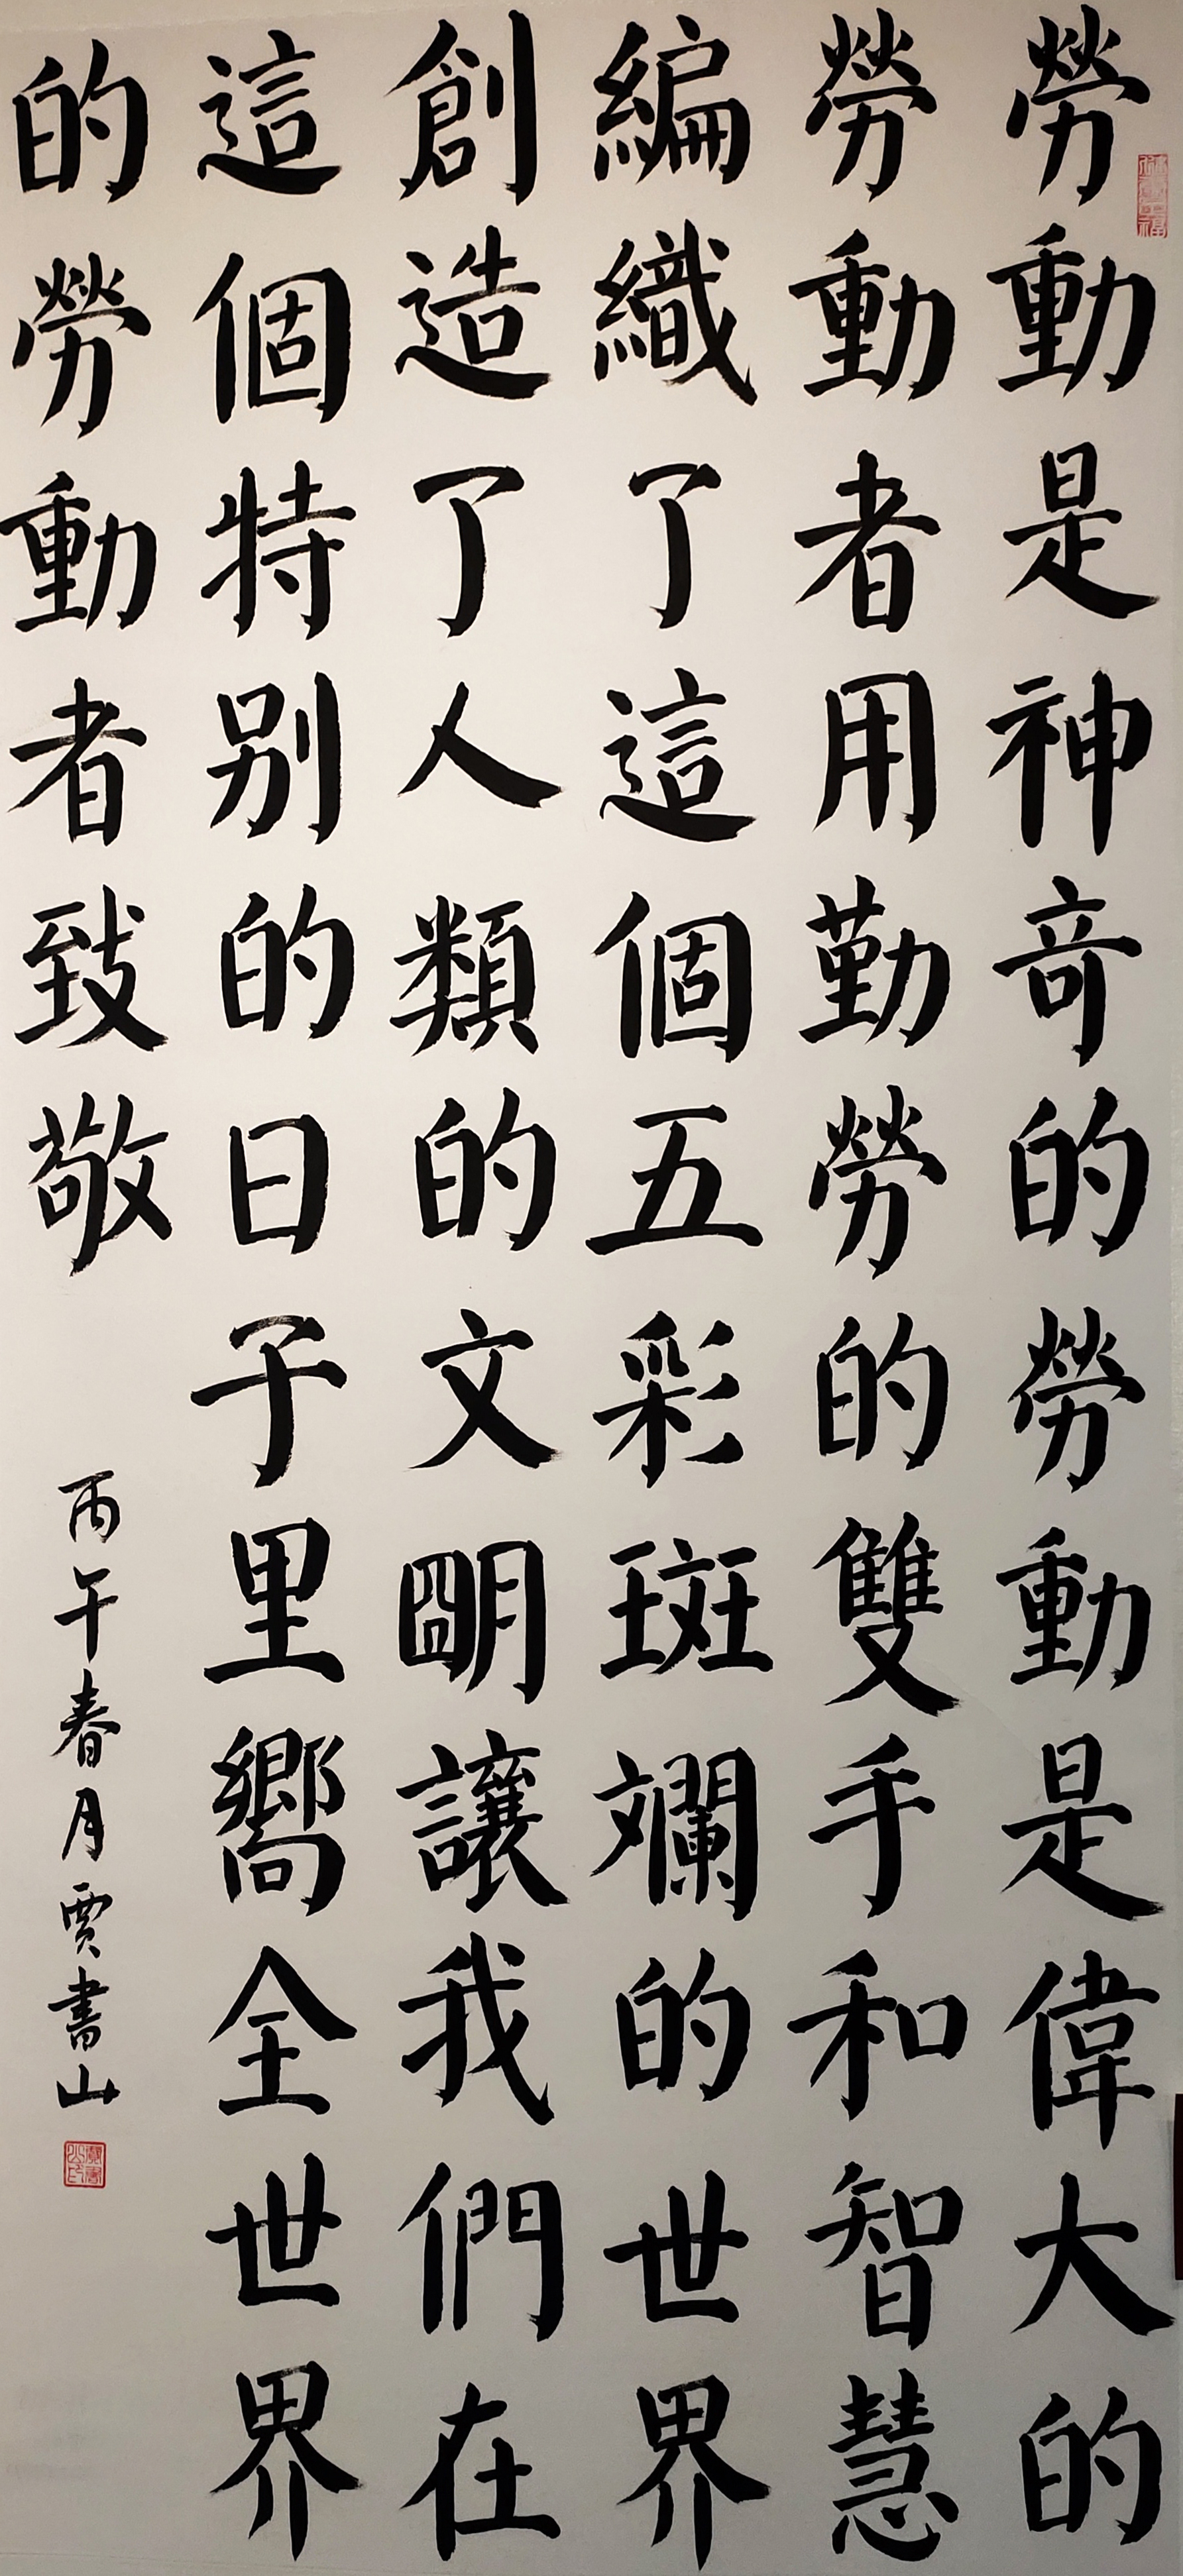 勞動是神竒的勞動是偉大的
勞動者用勤勞的雙手和智慧
編織了這個五彩斑斕的世界
創造了人類的文朙讓我們在
這個特别的日子里嚮全世界
的勞動者致敬
丙午春月賈書山